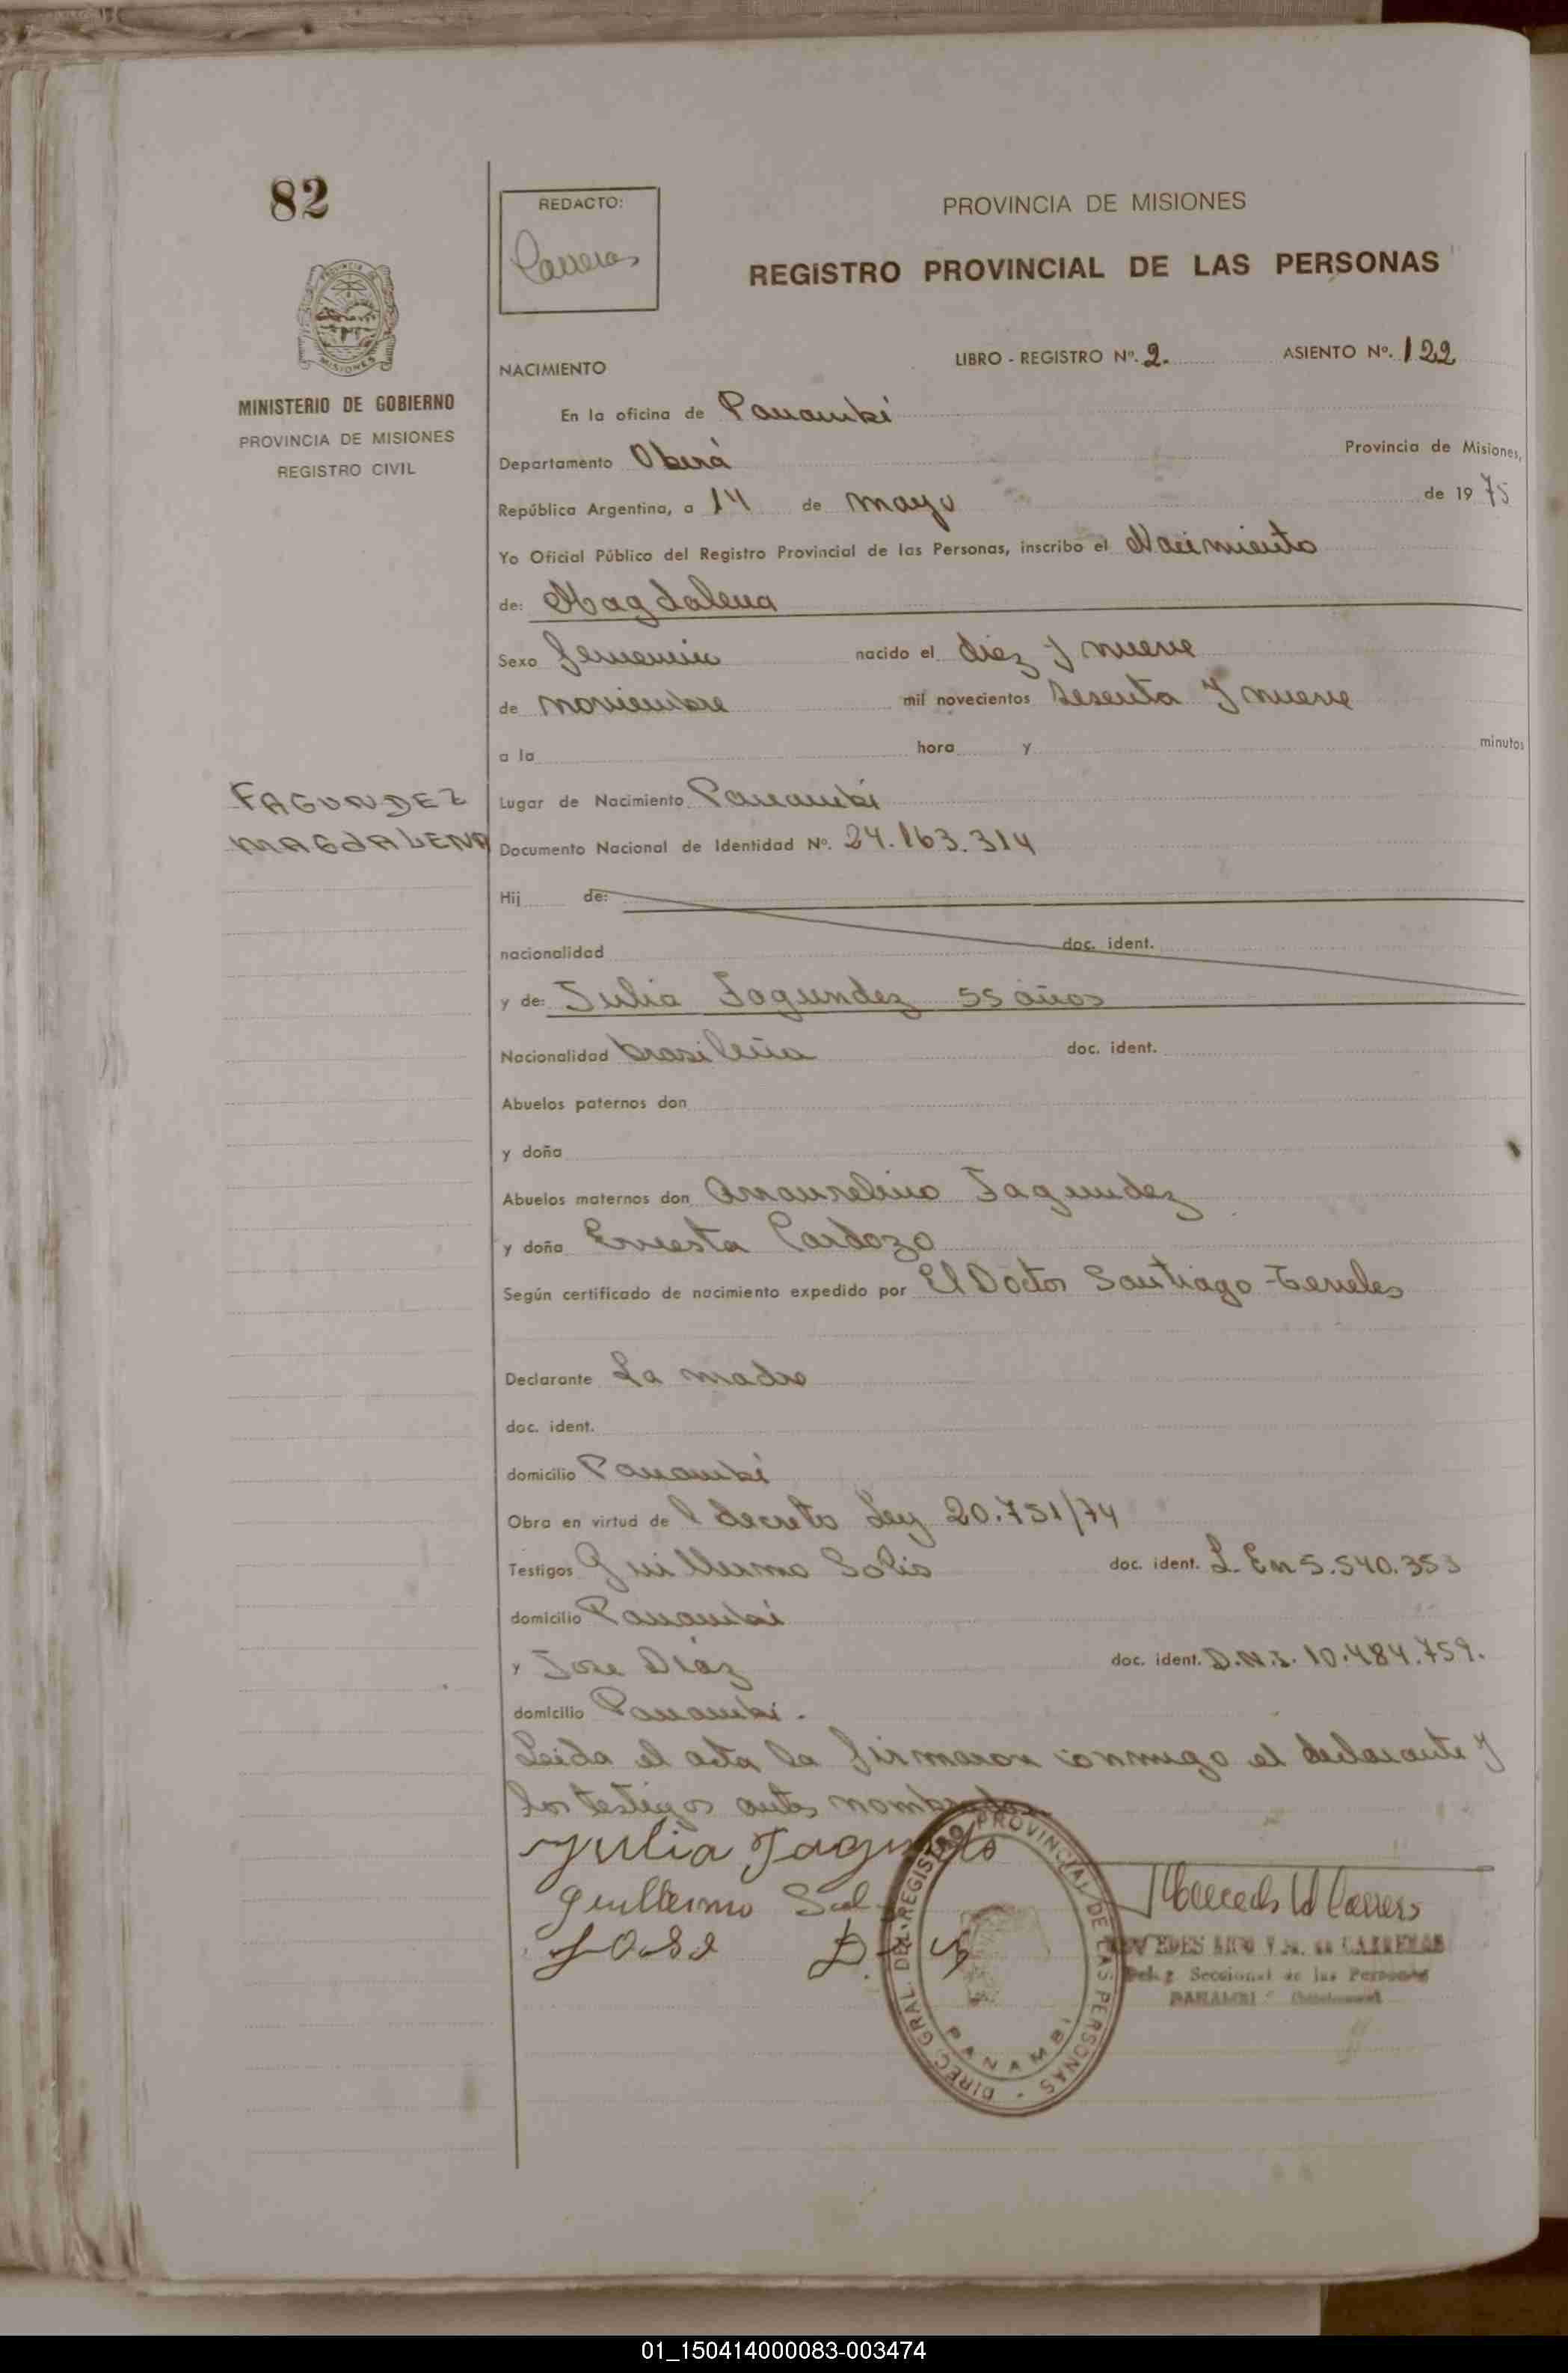 82
REDACTO:
Carreras
PROVINCIA DE MISIONES
REGISTRO PROVINCIAL DE LAS PERSONAS
PROVINCIA DE
MISIONES
MINISTERIO DE GOBIERNO
PROVINCIA DE MISIONES
REGISTRO CIVIL
NACIMIENTO LIBRO - REGISTRO Nº. 2. ASIENTO Nº. 122
En la oficina de Panambí
Departamento Oberá Provincia de Misiones,
República Argentina, a 14 de mayo de 1975
Yo Oficial Público del Registro Provincial de las Personas, inscribo el Nacimiento
de: Magdalena
Sexo femenino nacido el diez y nueve
de noviembre mil novecientos sesenta y nueve
a la hora y minutos
FAGUNDEZ
MAGdALENA
Lugar de Nacimiento Panambí
Documento Nacional de Identidad Nº. 24.163.314
Hij de:
nacionalidad doc. ident.
y de: Julia Fagundez 55 años
Nacionalidad brasileña doc. ident.
Abuelos paternos don
y doña
Abuelos maternos don Amaurelino Fagundez
y doña Ernesta Cardozo
Según certificado de nacimiento expedido por El Doctor Santiago
Declarante La madre
doc. ident.
domicilio Panambí
Obra en virtud de l decreto Ley 20.751/74
Testigos Guillermo Solis doc. ident. L. En 5.540.353
domicilio Panambí
y Jose Díaz doc. ident. D.N.I. 10.484.759.
domicilio Panambí.
Leida el acta la firmaron conmigo el declarante y
los testigos antes nombrados
Julia
Guillermo Sol
José D.
DIREC. GRAL. DEL REGISTRO PROVINCIAL DE LAS PERSONAS
PANAMBI
de CARRERAS
Seccional de las Personas
PANAMBI
01_150414000083-003474